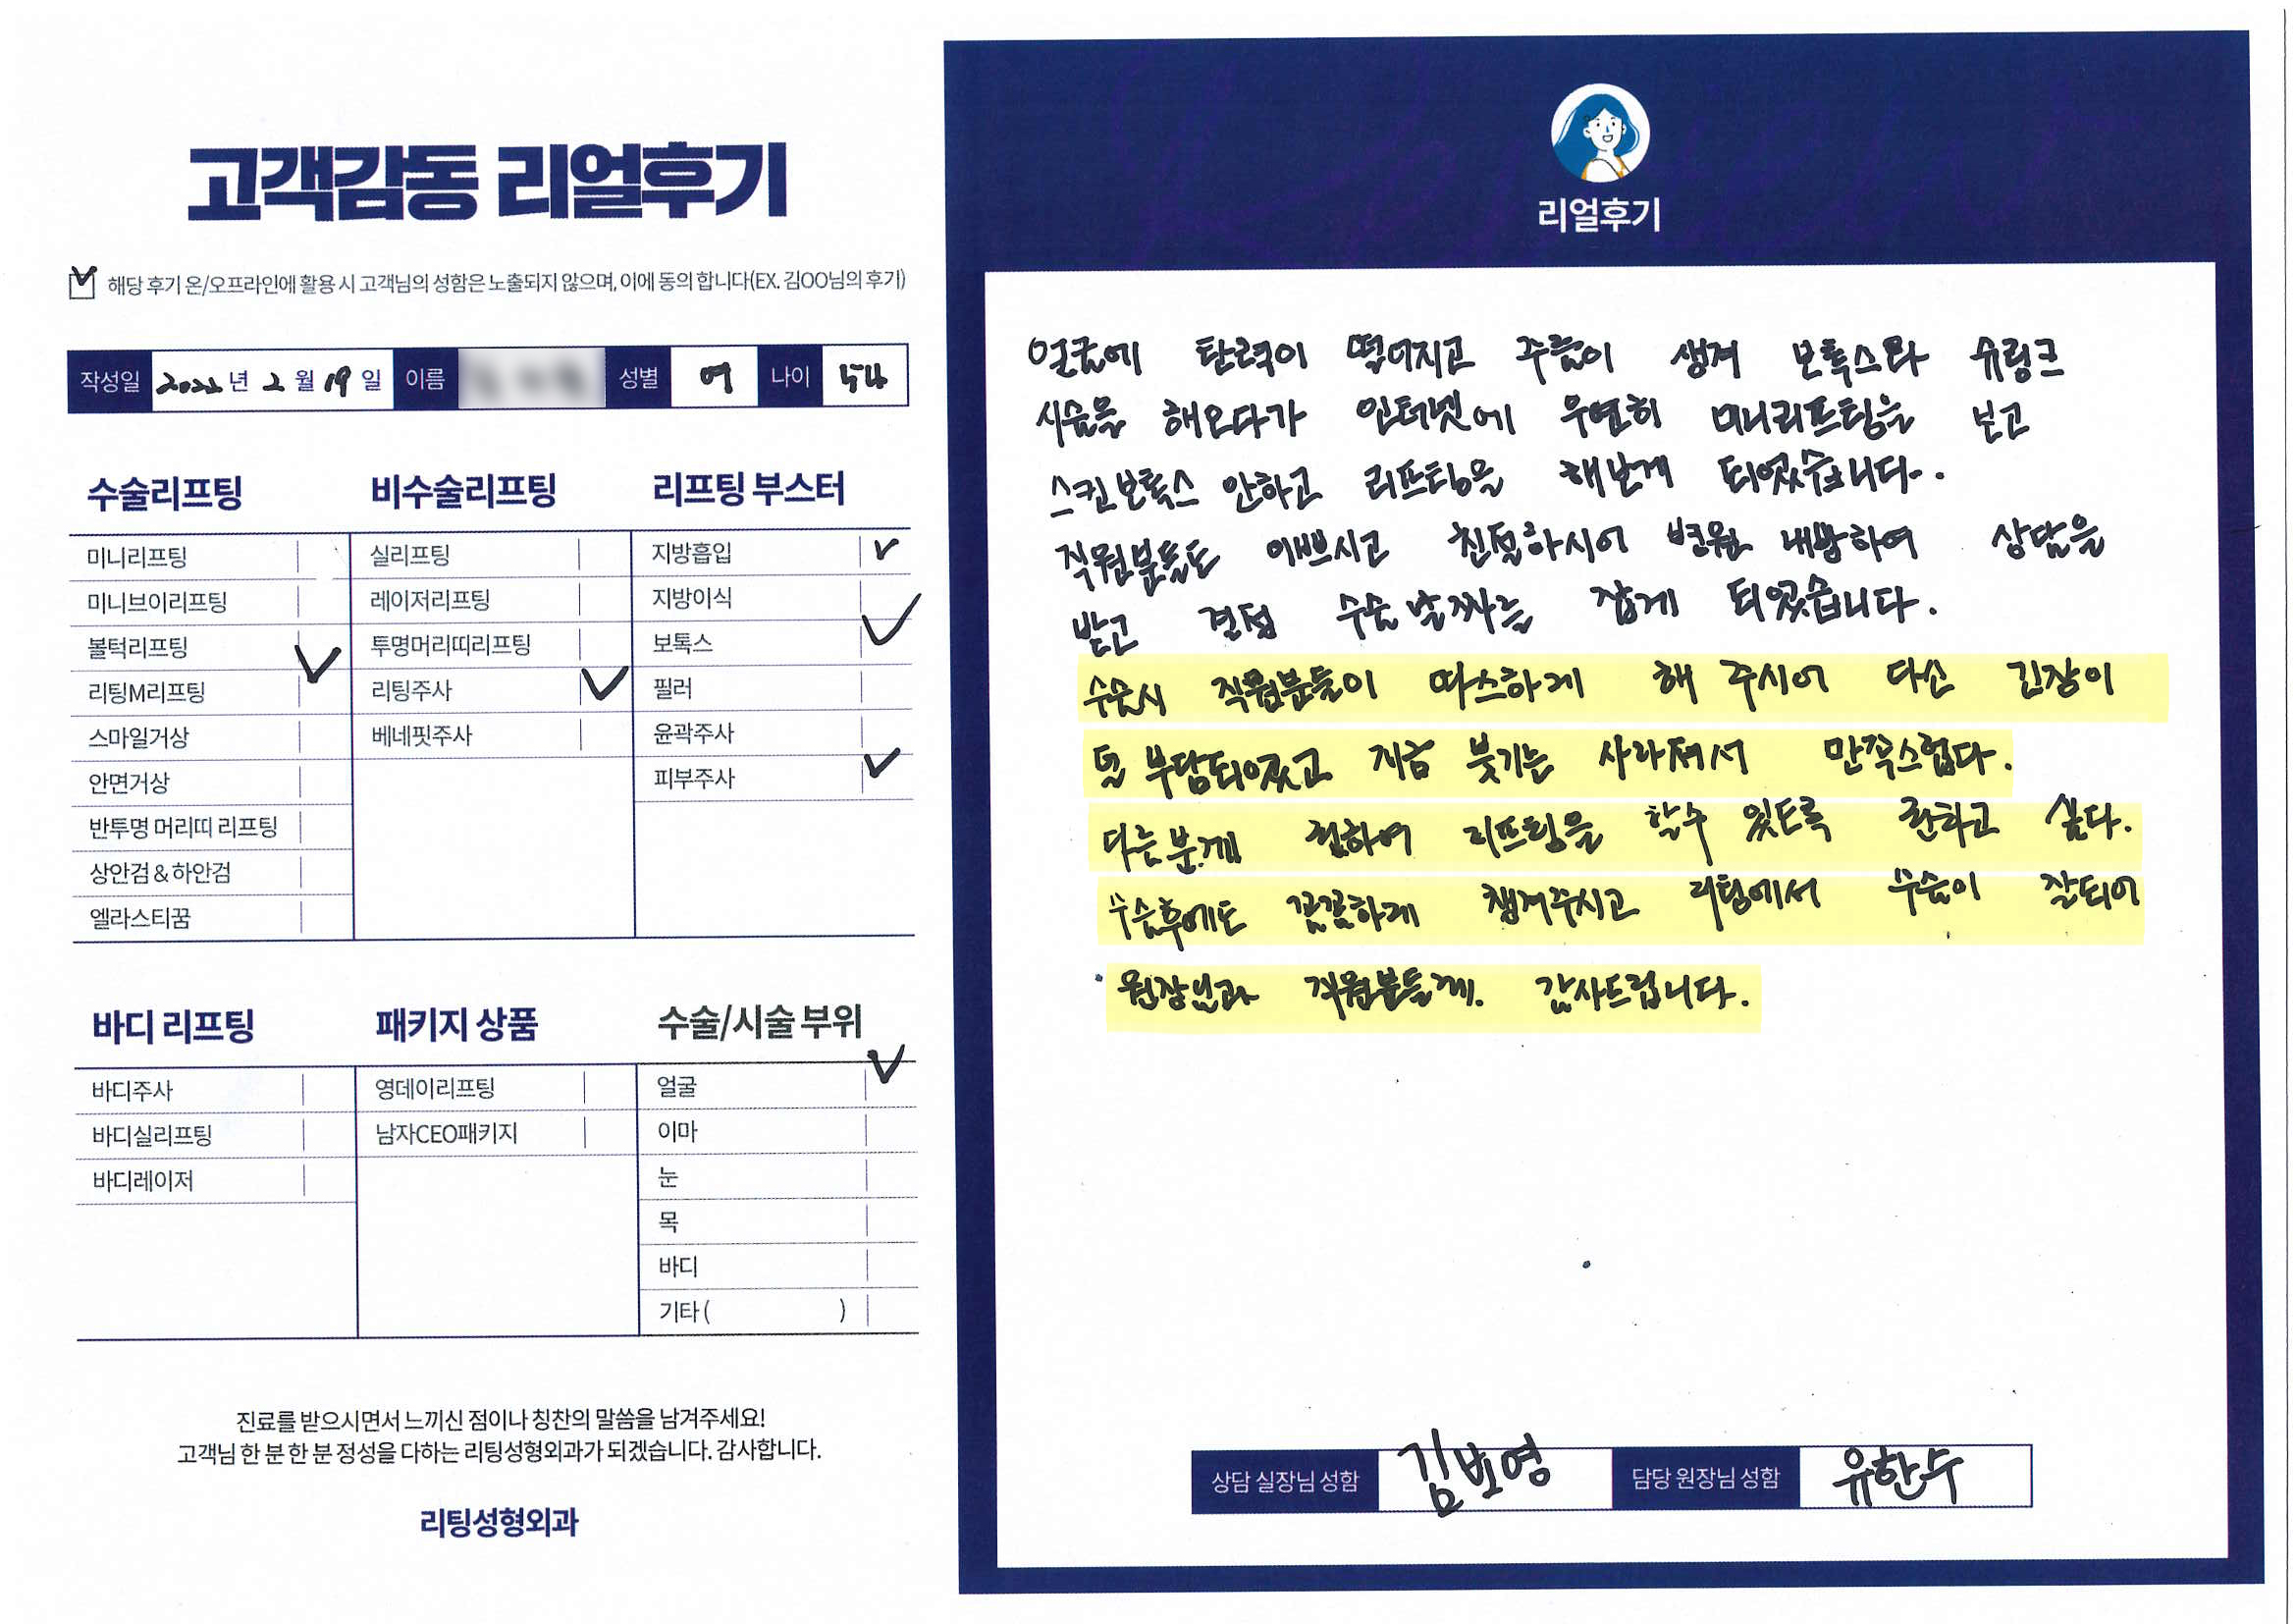 고객감동 리얼후기
해당 후기 온/오프라인에 활용 시 고객님의 성함은 노출되지 않으며, 이에 동의 합니다(EX. 김OO님의 후기)
작성일 2022년 2월 19일 이름 성별 여 나이 54
수술리프팅
미니리프팅
미니브이리프팅
볼턱리프팅
리팅M리프팅
스마일거상
안면거상
반투명 머리띠 리프팅
상안검 & 하안검
엘라스티꿈
비수술리프팅
실리프팅
레이저리프팅
투명머리띠리프팅
리팅주사
베네핏주사
리프팅 부스터
지방흡입
지방이식
보톡스
필러
윤곽주사
피부주사
바디 리프팅
바디주사
바디실리프팅
바디레이저
패키지 상품
영데이리프팅
남자CEO패키지
수술/시술 부위
얼굴
이마
눈
목
바디
기타 ( )
진료를 받으시면서 느끼신 점이나 칭찬의 말씀을 남겨주세요!
고객님 한 분 한 분 정성을 다하는 리팅성형외과가 되겠습니다. 감사합니다.
리팅성형외과
리얼후기
얼굴에 탄력이 떨어지고 주름이 생겨 보톡스와 슈링크
시술을 해오다가 인터넷에 우연히 미니리프팅을 보고
스킨보톡스 안하고 리프팅을 해보게 되었습니다.
직원분들도 이쁘시고 친절하시어 병원 내방하여 상담을
받고 결정 수술날짜를 잡게 되었습니다.
수술시 직원분들이 따스하게 해 주시어 다소 긴장이
덜 부담되었고 지금 붓기는 사라져서 만족스럽다.
다른분께 권하여 리프팅을 할수 있도록 권하고 싶다.
수술후에도 꼼꼼하게 챙겨주시고 리팅에서 수술이 잘되어
원장님과 직원분들께. 감사드립니다.
상담 실장님 성함 김보영 담당 원장님 성함 유한수